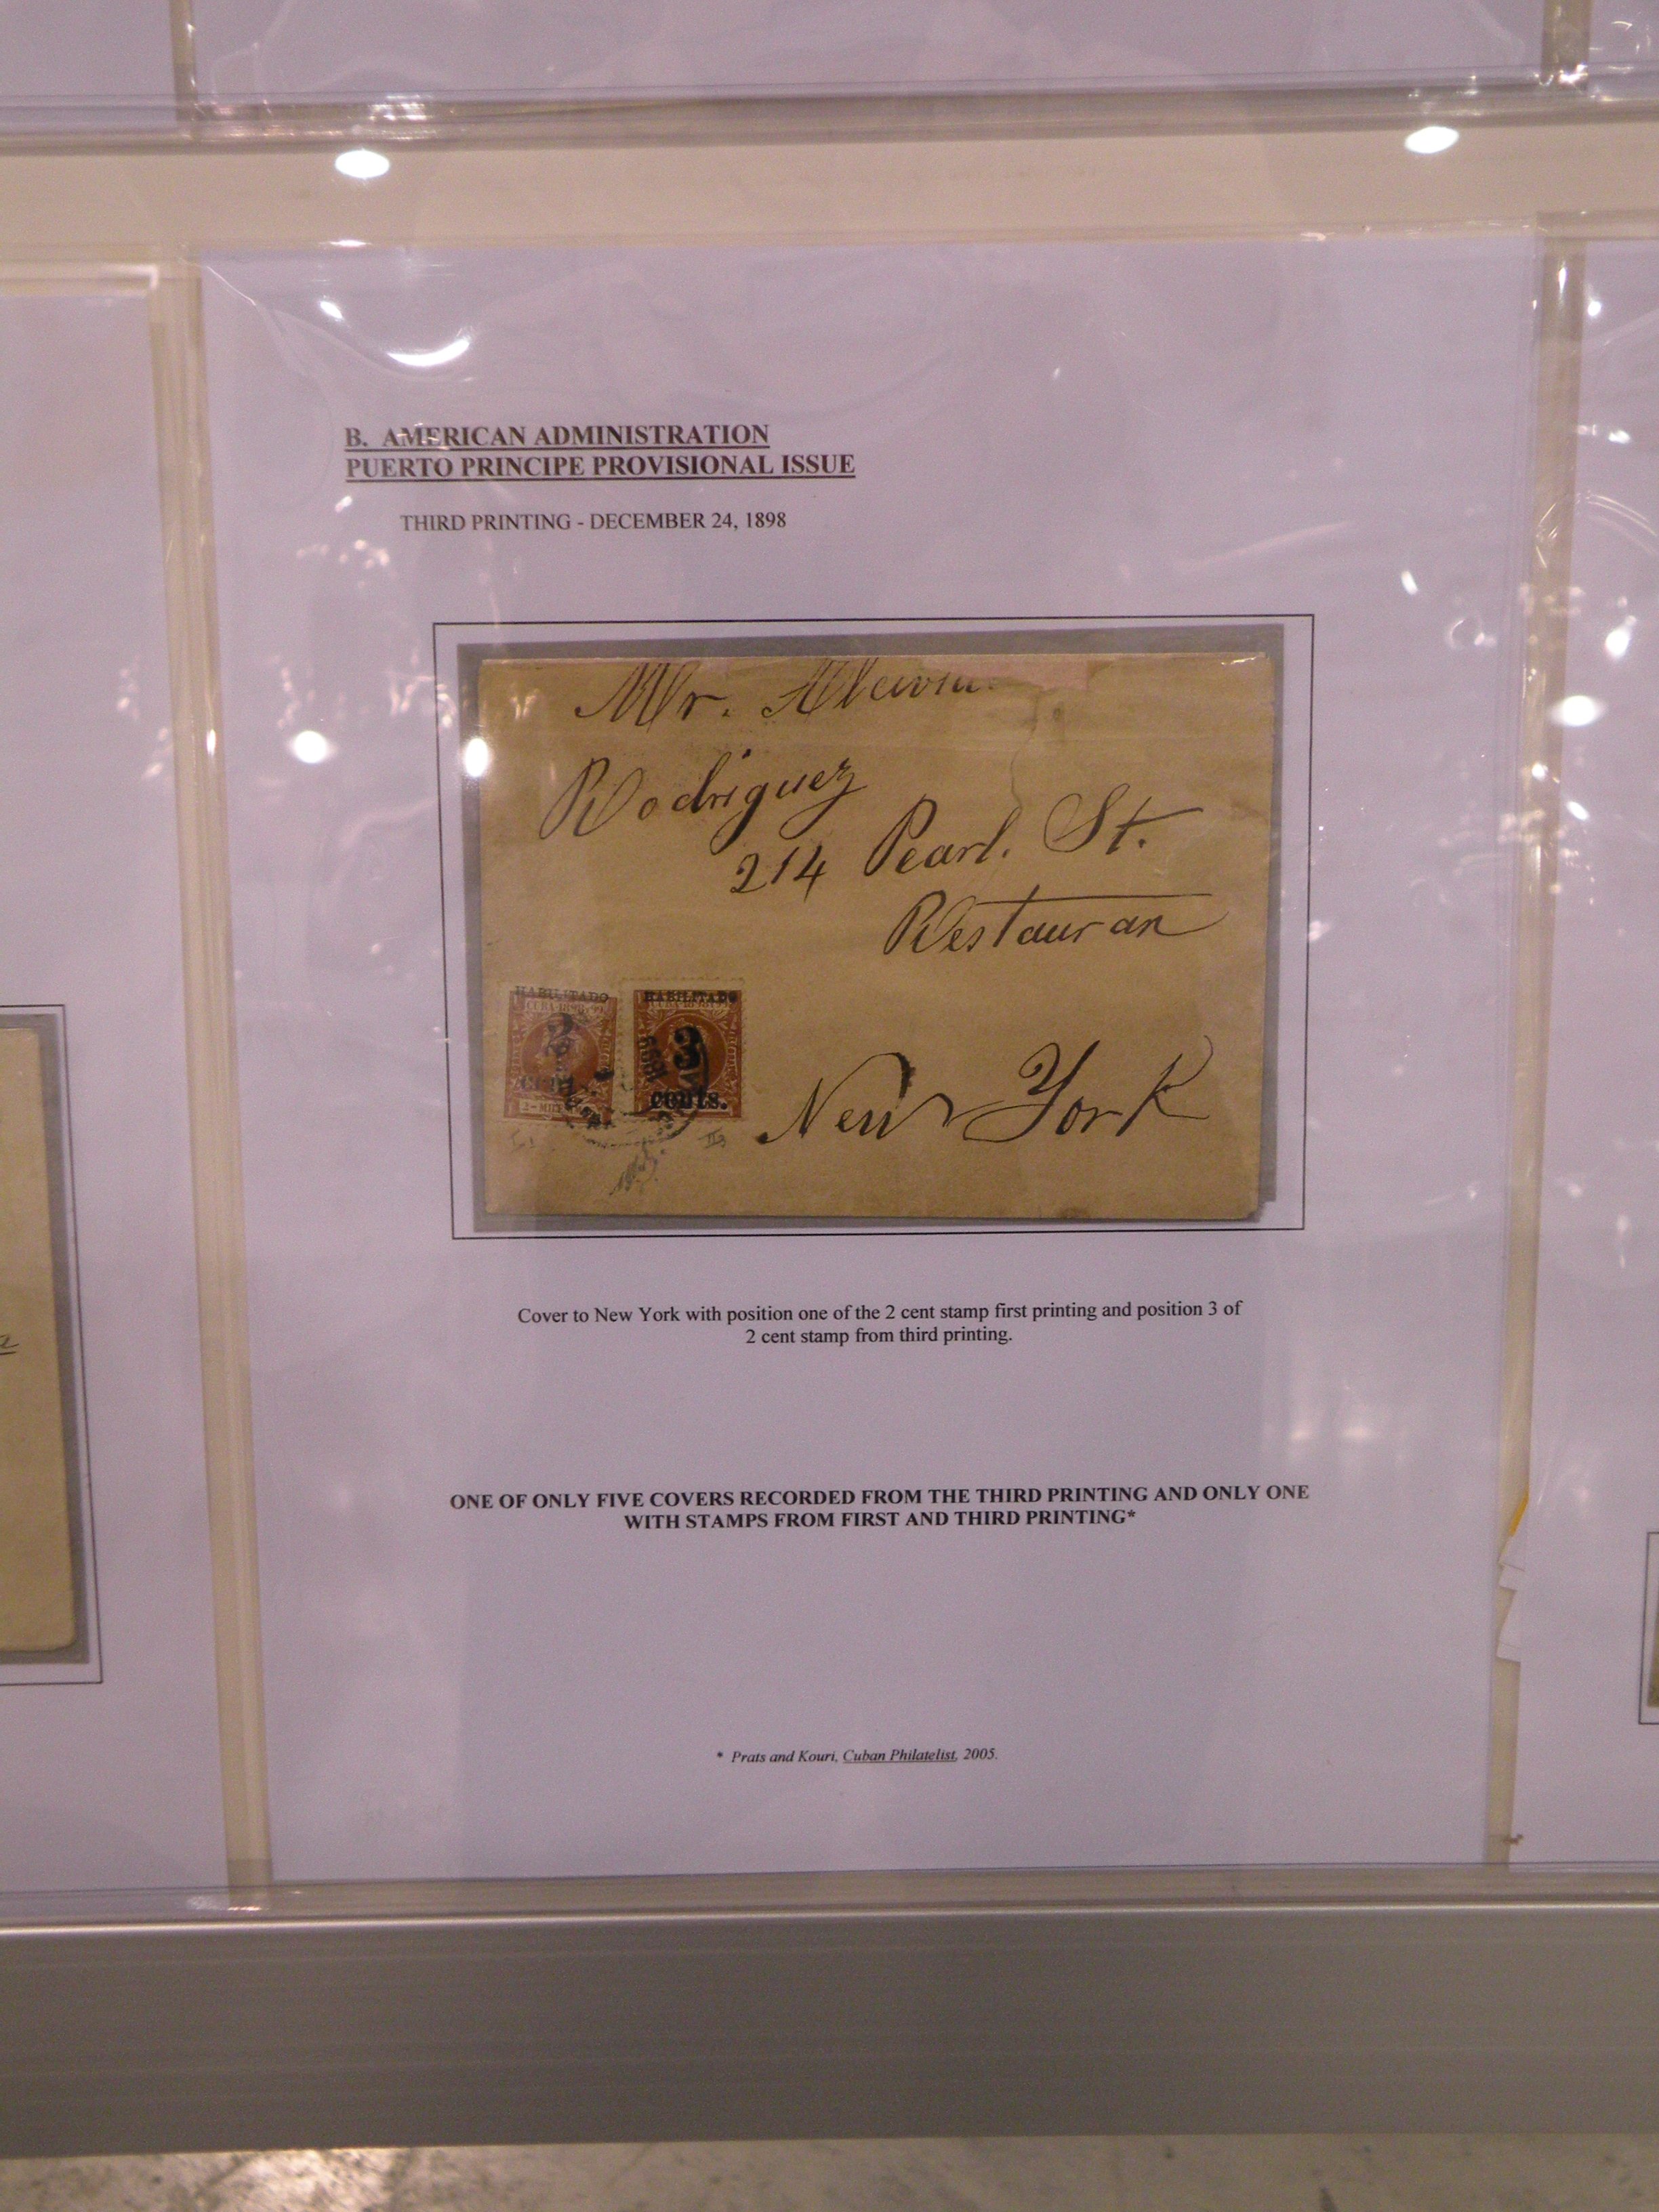 B. AMERICAN ADMINISTRATION
PUERTO PRINCIPE PROVISIONAL ISSUE
THIRD PRINTING - DECEMBER 24, 1898
Mr.
Rodriguez
214 Pearl. St.
Restauran
HABILITADO HABILITADO
2 3
cents.
2-MIL
New York
Cover to New York with position one of the 2 cent stamp first printing and position 3 of
2 cent stamp from third printing.
ONE OF ONLY FIVE COVERS RECORDED FROM THE THIRD PRINTING AND ONLY ONE
WITH STAMPS FROM FIRST AND THIRD PRINTING*
* Prats and Kouri, Cuban Philatelist, 2005.